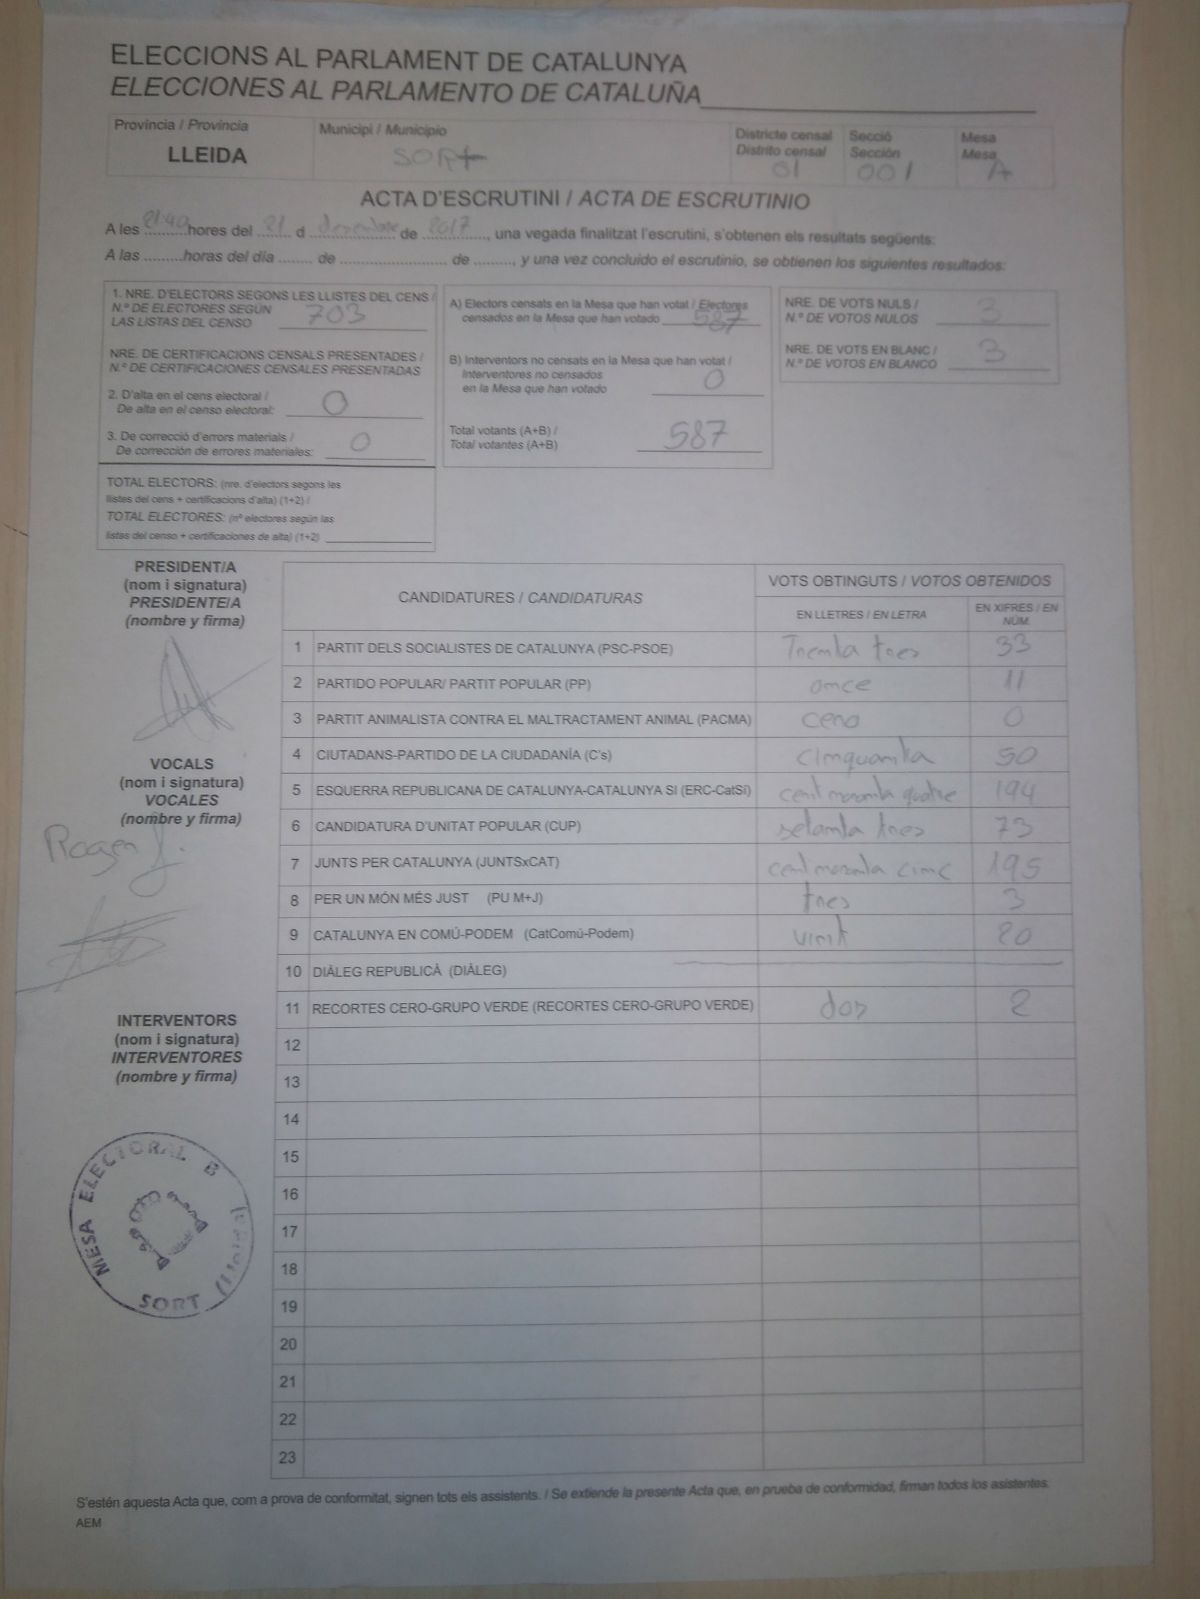 ELECCIONS AL PARLAMENT DE CATALUNYA
ELECCIONES AL PARLAMENTO DE CATALUÑA
Provincia / Provincia
LLEIDA
Municipi / Municipio
SORT
Districte censal
Distrito censal
01
Secció
Sección
001
Mesa
Mesa
A
ACTA D'ESCRUTINI / ACTA DE ESCRUTINIO
A les 21:40 hores del 21 d desembre de 2017, una vegada finalitzat l'escrutini, s'obtenen els resultats següents:
A las .........horas del día ........ de ........................ de ........., y una vez concluido el escrutinio, se obtienen los siguientes resultados:
1. NRE. D'ELECTORS SEGONS LES LLISTES DEL CENS /
N.º DE ELECTORES SEGÚN
LAS LISTAS DEL CENSO 703
NRE. DE CERTIFICACIONS CENSALS PRESENTADES /
N.º DE CERTIFICACIONES CENSALES PRESENTADAS
2. D'alta en el cens electoral /
De alta en el censo electoral: 0
3. De correcció d'errors materials /
De corrección de errores materiales: 0
TOTAL ELECTORS: (nre. d'electors segons les
llistes del cens + certificacions d'alta) (1+2) /
TOTAL ELECTORES: (nº electores según las
listas del censo + certificaciones de alta) (1+2)
A) Electors censats en la Mesa que han votat / Electores
censados en la Mesa que han votado 587
B) Interventors no censats en la Mesa que han votat /
Interventores no censados
en la Mesa que han votado 0
Total votants (A+B) /
Total votantes (A+B) 587
NRE. DE VOTS NULS /
N.º DE VOTOS NULOS 3
NRE. DE VOTS EN BLANC /
N.º DE VOTOS EN BLANCO 3
PRESIDENT/A
(nom i signatura)
PRESIDENTE/A
(nombre y firma)
VOCALS
(nom i signatura)
VOCALES
(nombre y firma)
Roger
INTERVENTORS
(nom i signatura)
INTERVENTORES
(nombre y firma)
MESA ELECTORAL B
SORT
CANDIDATURES / CANDIDATURAS
VOTS OBTINGUTS / VOTOS OBTENIDOS
EN LLETRES / EN LETRA
EN XIFRES / EN
NÚM.
1 PARTIT DELS SOCIALISTES DE CATALUNYA (PSC-PSOE) Trenta tres 33
2 PARTIDO POPULAR/ PARTIT POPULAR (PP) once 11
3 PARTIT ANIMALISTA CONTRA EL MALTRACTAMENT ANIMAL (PACMA) cero 0
4 CIUTADANS-PARTIDO DE LA CIUDADANÍA (C's) cinquanta 50
5 ESQUERRA REPUBLICANA DE CATALUNYA-CATALUNYA SÍ (ERC-CatSí) cent noranta quatre 194
6 CANDIDATURA D'UNITAT POPULAR (CUP) setanta tres 73
7 JUNTS PER CATALUNYA (JUNTSxCAT) cent noranta cinc 195
8 PER UN MÓN MÉS JUST (PU M+J) tres 3
9 CATALUNYA EN COMÚ-PODEM (CatComú-Podem) vint 20
10 DIÀLEG REPUBLICÀ (DIÀLEG)
11 RECORTES CERO-GRUPO VERDE (RECORTES CERO-GRUPO VERDE) dos 2
12
13
14
15
16
17
18
19
20
21
22
23
S'estén aquesta Acta que, com a prova de conformitat, signen tots els assistents. / Se extiende la presente Acta que, en prueba de conformidad, firman todos los asistentes.
AEM